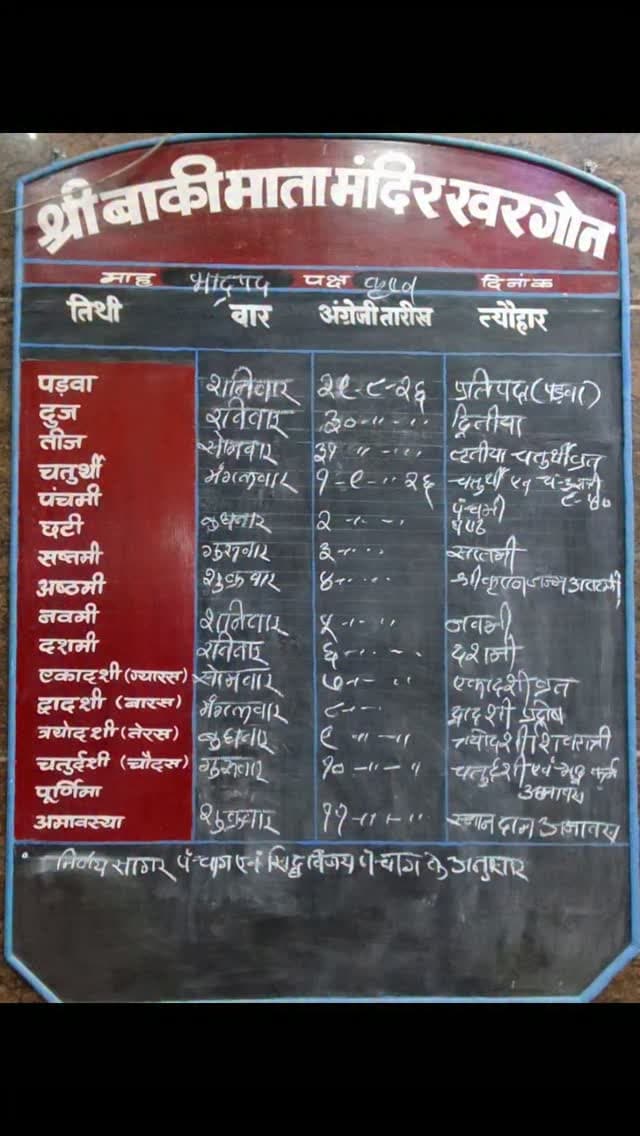 श्री बाकी माता मंदिर खरगोन
माह भाद्रपद पक्ष कृष्ण दिनांक
तिथी वार अंग्रेजी तारीस त्यौहार
पड़वा शनिवार २९-८-२६ प्रतिपदा (पड़वा)
दुज रविवार ३०-"-" द्वितीया
तीज सोमवार ३१ "-" तृतीया चतुर्थी व्रत
चतुर्थी मंगलवार १-९-"२६ चतुर्थी एवं चं.
९-४०
पंचमी पंचमी
छटी बुधवार २-"-" षष्ठी
सप्तमी गुरुवार ३-"-" सप्तमी
अष्ठमी शुक्रवार ४-"-" श्रीकृष्ण जन्म अष्टमी
नवमी शनिवार ५-"-" नवमी
दशमी रविवार ६-"-" दशमी
एकादशी (ग्यारस) सोमवार ७-"-" एकादशी व्रत
द्वादशी (बारस) मंगलवार ८-"-" द्वादशी प्रदोष
त्रयोदशी (तेरस) बुधवार ९ "-" त्रयोदशी शिवरात्री
चतुर्दशी (चौदस) गुरुवार १०-"-" चतुर्दशी एवं
अमावस
पूर्णिमा
अमावस्या शुक्रवार ११-"-" स्नान दान अमावस
निर्णय सागर पंचांग एवं सिद्ध विजय पंचांग के अनुसार